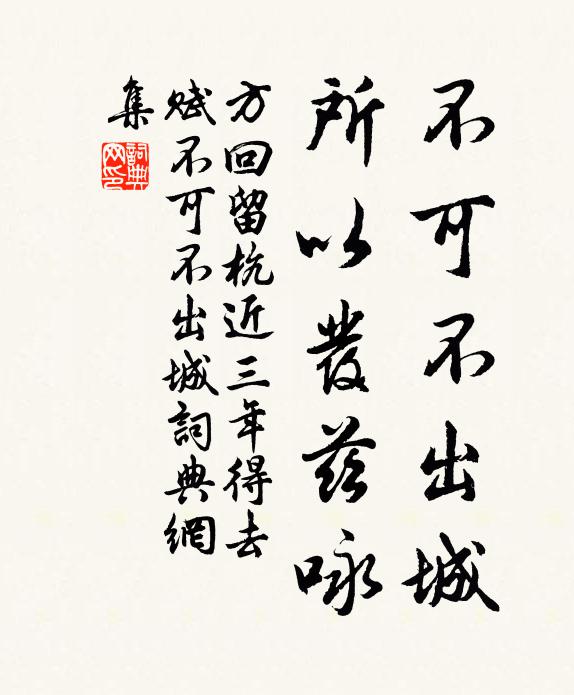 不可不出城
所以發茲咏
方回留杭近三年得去
賦不可不出城詞典網
集
詞典
网印